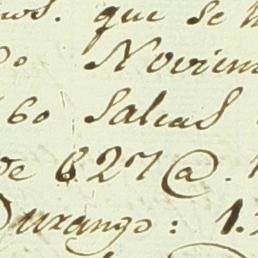 que se
Noviem
60 Salcas
de 627@.
Durango: 1.